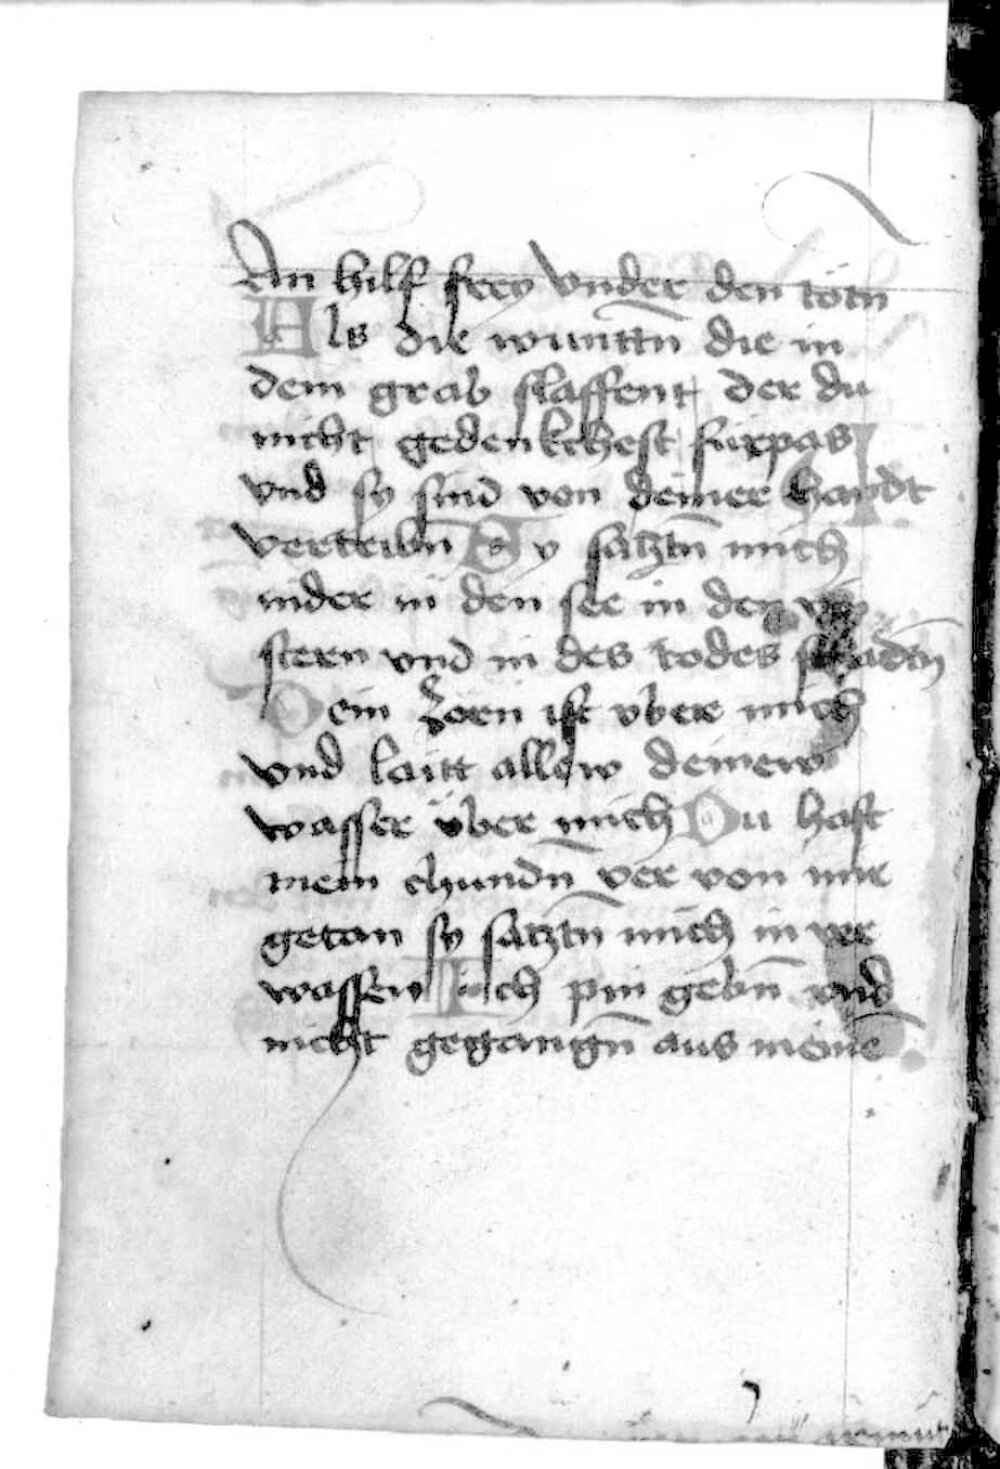 An hilf frey vnder den tötn
Als die wuntn̄ die in
dem grab slaffent der du
nicht gedenkchest fürpas
vnd sy sind von deiner handt
vertribn̄ Sy saztn̄ mich
nider in den see in der vin
stern vnd in des todes schadn̄
Dein zorn ist vber mich
vnd laitt allew deinew
wasser über mich Du hast
mein chundn̄ ver von mir
getan sy saztn̄ mich in ver
wassen Ich pin gebn̄ vnd
nicht gegangn̄ aus meine